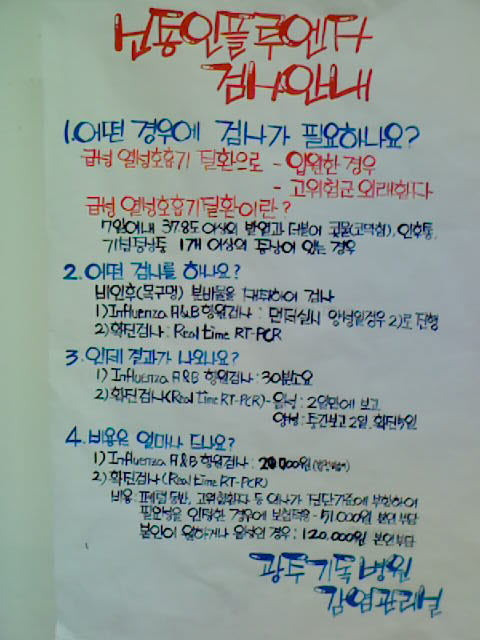 신종인플루엔자
검사안내
1.어떤 경우에 검사가 필요하나요?
급성 열성호흡기 질환으로 - 입원한 경우
- 고위험군 외래환자
급성 열성호흡기질환이란?
7일이내 37.8도 이상의 발열과 더불어 콧물(코막힘), 인후통,
기침증상중 1개 이상의 증상이 있는 경우
2.어떤 검사를 하나요?
비인후(목구멍) 분비물을 채취하여 검사
1)Influenza A&B 항원검사 : 먼저실시 양성일경우 2)로 진행
2)확진검사 : Real time RT-PCR
3.언제 결과가 나오나요?
1) Influenza A&B 항원검사 : 30분소요
2)확진검사(Real time RT-PCR) - 음성 : 2일만에 보고
양성 : 중간보고 2일, 확진5일
4.비용은 얼마나 드나요?
1) Influenza A&B 항원검사 : 20,000원
2)확진검사(Real time RT-PCR)
비용 : 폐렴동반, 고위험환자 등 의사가 진단기준에 부합하여
필요성을 인정한 경우에 보험적용 - 51,000원 본인부담
본인이 원하거나 음성인 경우 : 120,000원 본인부담
광주기독병원
감염관리실